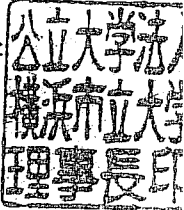 公立大学法人
横浜市立大学
理事長印